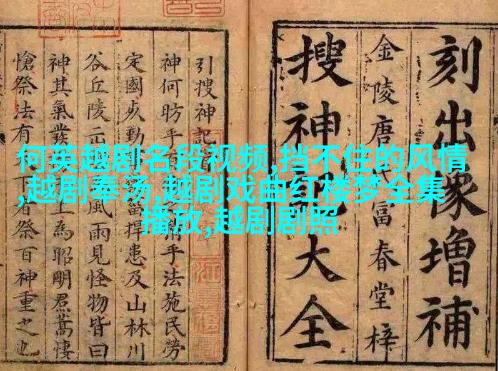 何英越剧名段视频,挡不住的风情
,越剧奉汤,越剧戏曲红楼梦全集
播放,越剧剧照
刻出像增補
金陵唐氏富春堂梓
搜神記大全
引搜神記
神何昉乎 手法施民勞
定國 捍患及山林川
谷丘陵 風雨見怪物皆曰
神其氣發 爲昭明焄蒿悽
愴祭法有 者祭百神重之也